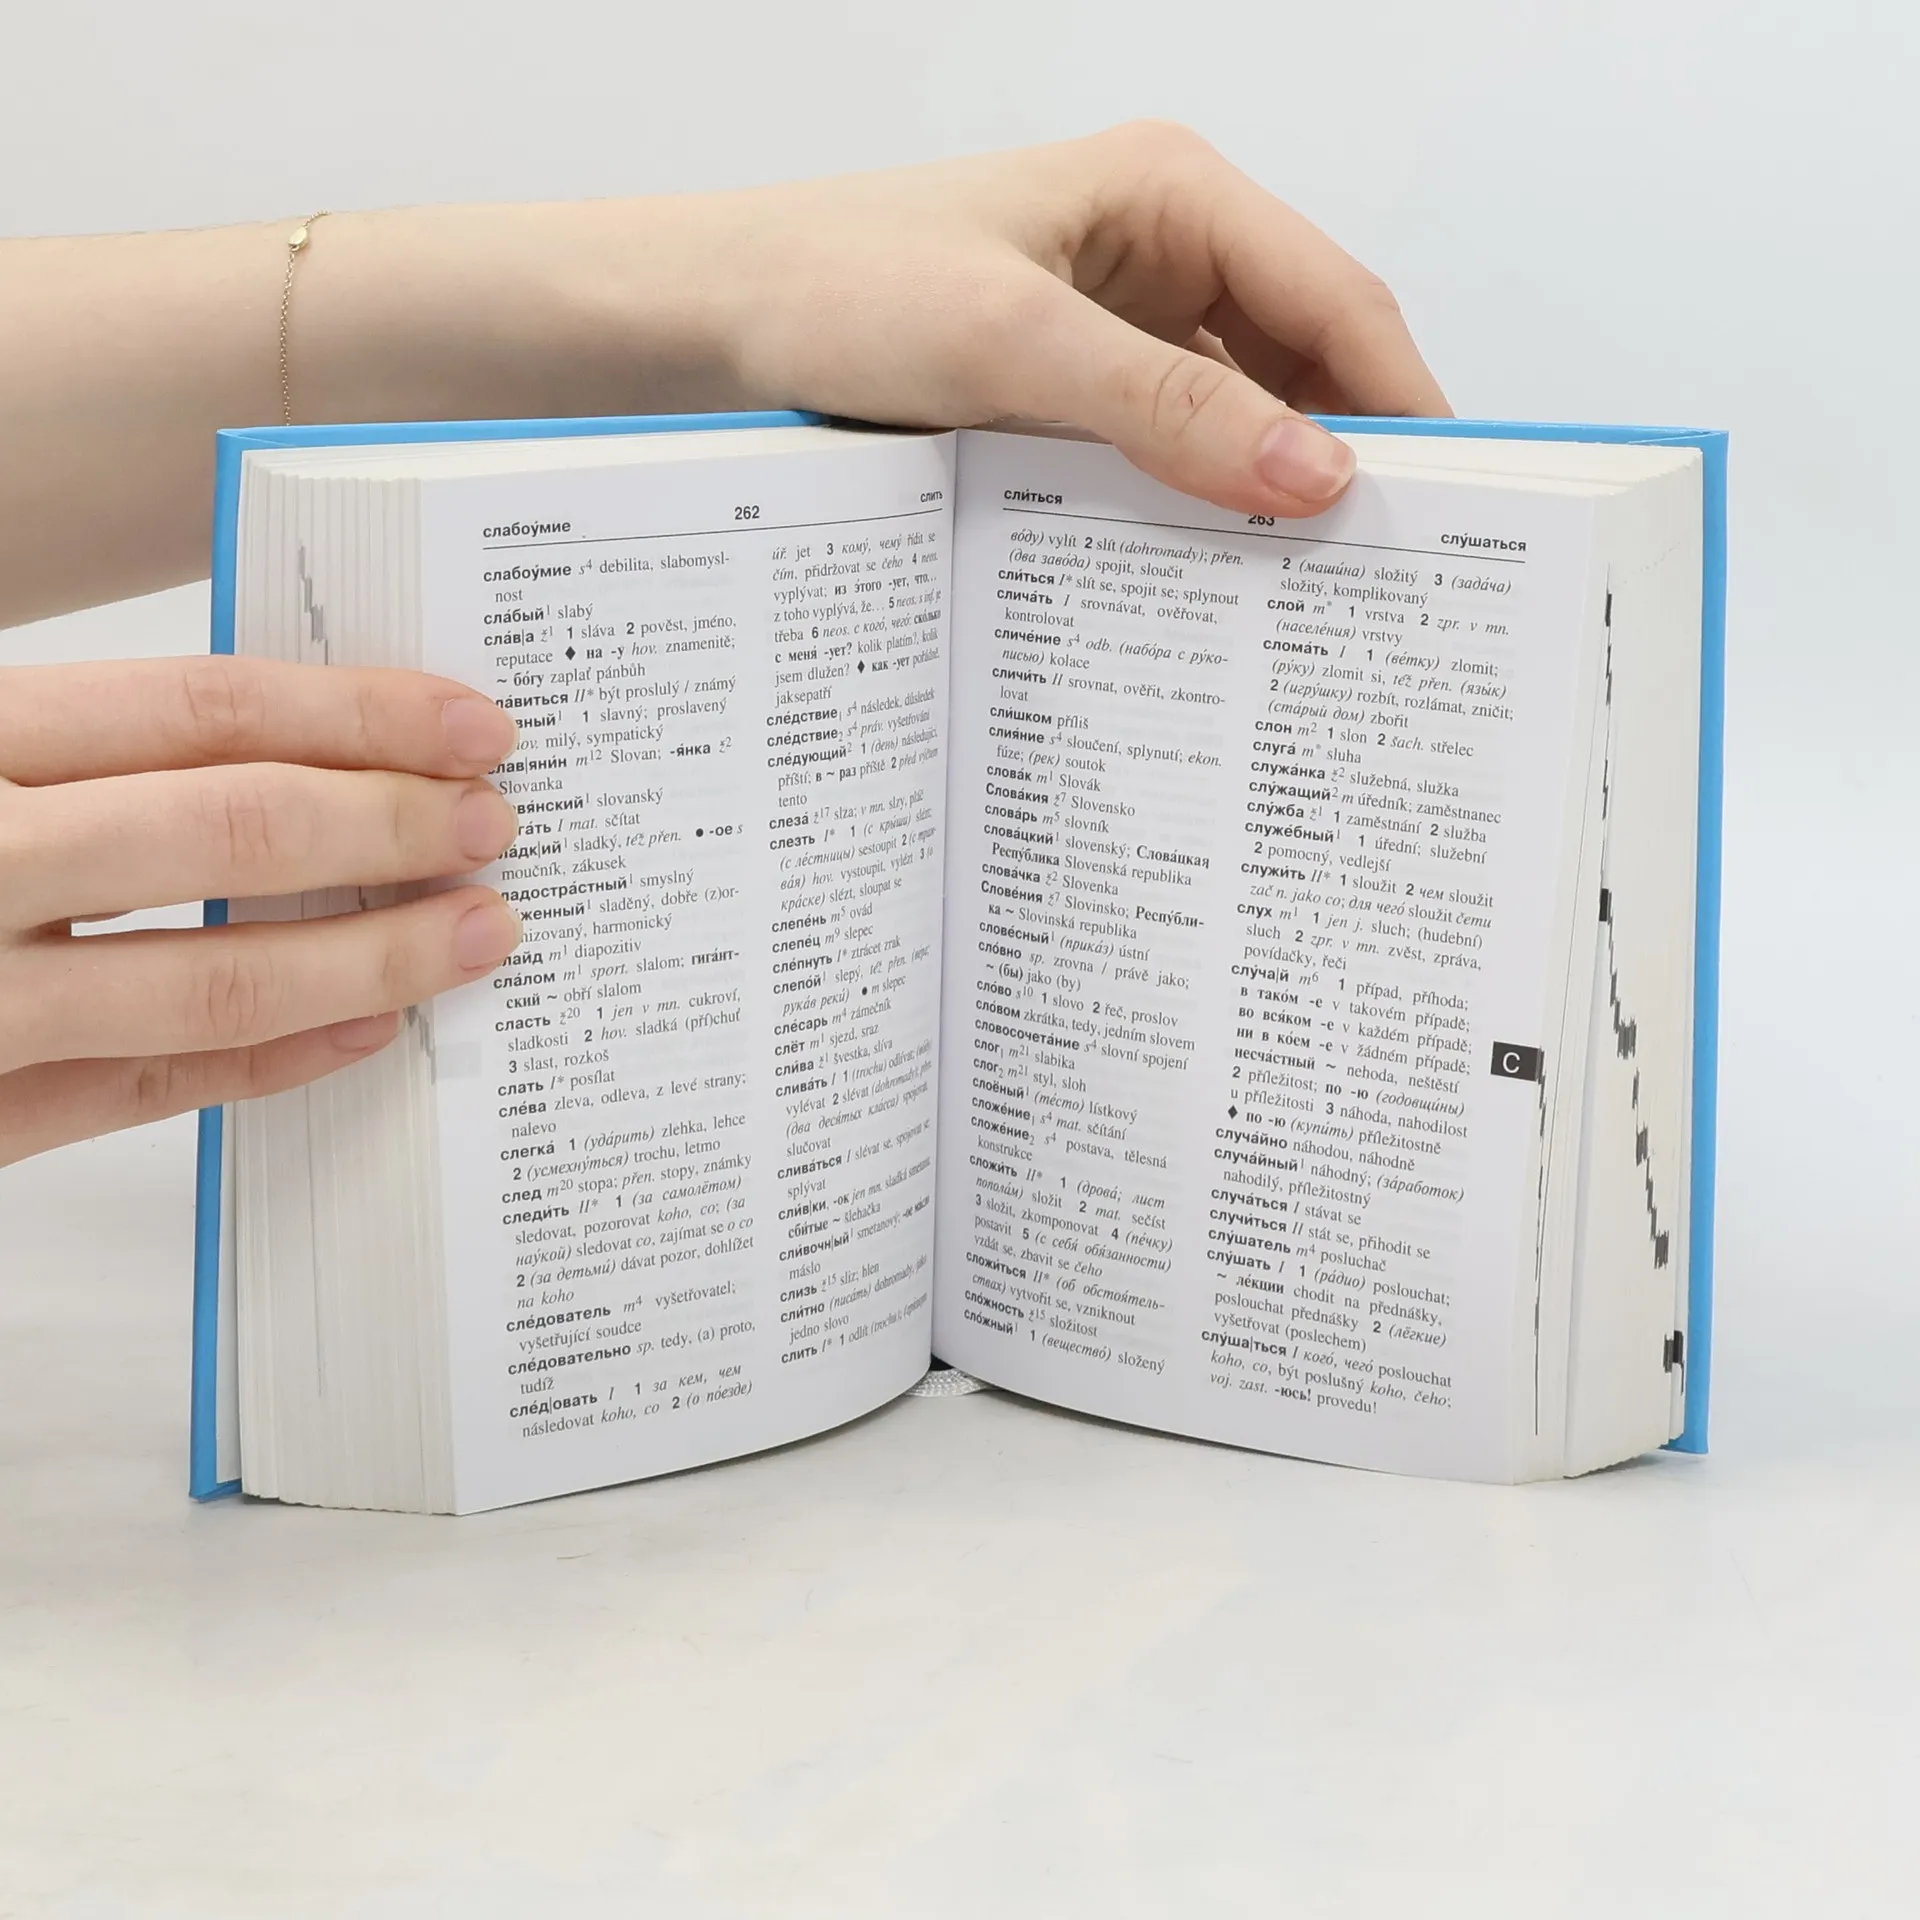 слабоу́мие 262 слить
слабоу́мие s4 debilita, slabomysl-
nost
сла́бый1 slabý
сла́в|а ž1 1 sláva 2 pověst, jméno,
reputace ♦ на -у hov. znamenitě;
~ бо́гу zaplať pánbůh
ла́виться II* být proslulý / známý
вный1 1 slavný; proslavený
hov. milý, sympatický
лав|яни́н m12 Slovan; -я́нка ž2
Slovanka
вя́нский1 slovanský
га́ть I mat. sčítat
ла́дк|ий1 sladký, též přen. ● -ое s
moučník, zákusek
ладостра́стный1 smyslný
женный1 sladěný, dobře (z)or-
nizovaný, harmonický
лайд m1 diapozitiv
сла́лом m1 sport. slalom; гига́нт-
ский ~ obří slalom
сласть ž20 1 jen v mn. cukroví,
sladkosti 2 hov. sladká (pří)chuť
3 slast, rozkoš
слать I* posílat
сле́ва zleva, odleva, z levé strany;
nalevo
слегка́ 1 (уда́рить) zlehka, lehce
2 (усмехну́ться) trochu, letmo
след m20 stopa; přen. stopy, známky
следи́ть II* 1 (за самолётом)
sledovat, pozorovat koho, co; (за
нау́кой) sledovat co, zajímat se o co
2 (за детьми́) dávat pozor, dohlížet
na koho
сле́дователь m4 vyšetřovatel;
vyšetřující soudce
сле́довательно sp. tedy, (a) proto,
tudíž
сле́д|овать I 1 за кем, чем
následovat koho, co 2 (о по́езде)
úř. jet 3 кому́, чему́ řídit se
čím, přidržovat se čeho 4 neos.
vyplývat; из э́того -ует, что…
z toho vyplývá, že… 5 neos. s inf. je
třeba 6 neos. с кого́, чего́: ско́лько
с меня́ -ует? kolik platím?, kolik
jsem dlužen? ♦ как -ует pořádně,
jaksepatří
сле́дствие1 s4 následek, důsledek
сле́дствие2 s4 práv. vyšetřování
сле́дующий2 1 (день) následující,
příští; в ~ раз příště 2 před výčtem
tento
слеза́ ž17 slza; v mn. slzy, pláč
слезть I* 1 (с кры́ши) slézt;
(с ле́стницы) sestoupit 2 (с трам-
ва́я) hov. vystoupit, vylézt 3 (о
кра́ске) slézt, sloupat se
слепе́нь m5 ovád
слепе́ц m9 slepec
сле́пнуть I* ztrácet zrak
слепо́й1 slepý, též přen. (např.
рука́в реки́) ● m slepec
сле́сарь m4 zámečník
слёт m1 sjezd, sraz
сли́ва ž1 švestka, slíva
слива́ть I 1 (trochu) odlévat; (воду)
vylévat 2 slévat (dohromady); přen.
(два деся́тых кла́сса) spojovat,
slučovat
слива́ться I slévat se, spojovat se,
splývat
сли́в|ки, -ок jen mn. sladká smetana;
сби́тые ~ šlehačka
сли́вочн|ый1 smetanový; -ое ма́сло
máslo
слизь ž15 sliz; hlen
сли́тно (писа́ть) dohromady, jako
jedno slovo
слить I* 1 odlít (trochu);
сли́ться 263 слу́шаться
во́ду) vylít 2 slít (dohromady); přen.
(два заво́да) spojit, sloučit
сли́ться I* slít se, spojit se; splynout
слича́ть I srovnávat, ověřovat,
kontrolovat
сличе́ние s4 odb. (набо́ра с ру́ко-
писью) kolace
сличи́ть II srovnat, ověřit, zkontro-
lovat
сли́шком příliš
слия́ние s4 sloučení, splynutí; ekon.
fúze; (рек) soutok
слова́к m1 Slovák
Слова́кия ž7 Slovensko
слова́рь m5 slovník
слова́цкий1 slovenský; Слова́цкая
Респу́блика Slovenská republika
слова́чка ž2 Slovenka
Слове́ния ž7 Slovinsko; Респу́бли-
ка ~ Slovinská republika
слове́сный1 (прика́з) ústní
сло́вно sp. zrovna / právě jako;
~ (бы) jako (by)
сло́во s10 1 slovo 2 řeč, proslov
сло́вом zkrátka, tedy, jedním slovem
словосочета́ние s4 slovní spojení
слог1 m21 slabika
слог2 m21 styl, sloh
слоёный1 (те́сто) lístkový
сложе́ние1 s4 mat. sčítání
сложе́ние2 s4 postava, tělesná
konstrukce
сложи́ть II* 1 (дрова́; лист
попола́м) složit 2 mat. sečíst
3 složit, zkomponovat 4 (пе́чку)
postavit 5 (с себя́ обя́занности)
vzdát se, zbavit se čeho
сложи́ться II* (об обстоя́тель-
ствах) vytvořit se, vzniknout
сло́жность ž15 složitost
сло́жный1 1 (вещество́) složený
2 (маши́на) složitý 3 (зада́ча)
složitý, komplikovaný
слой m* 1 vrstva 2 zpr. v mn.
(населе́ния) vrstvy
слома́ть I 1 (ве́тку) zlomit;
(ру́ку) zlomit si, též přen. (язы́к)
2 (игру́шку) rozbít, rozlámat, zničit;
(ста́рый дом) zbořit
слон m2 1 slon 2 šach. střelec
слуга́ m* sluha
служа́нка ž2 služebná, služka
слу́жащий2 m úředník; zaměstnanec
слу́жба ž1 1 zaměstnání 2 služba
служе́бный1 1 úřední; služební
2 pomocný, vedlejší
служи́ть II* 1 sloužit 2 чем sloužit
zač n. jako co; для чего́ sloužit čemu
слух m1 1 jen j. sluch; (hudební)
sluch 2 zpr. v mn. zvěst, zpráva,
povídačky, řeči
слу́ча|й m6 1 případ, příhoda;
в тако́м -е v takovém případě;
во вся́ком -е v každém případě;
ни в ко́ем -е v žádném případě;
несча́стный ~ nehoda, neštěstí
2 příležitost; по -ю (годовщи́ны)
u příležitosti 3 náhoda, nahodilost
♦ по -ю (купи́ть) příležitostně
случа́йно náhodou, náhodně
случа́йный1 náhodný; (за́работок)
nahodilý, příležitostný
случа́ться I stávat se
случи́ться II stát se, přihodit se
слу́шатель m4 posluchač
слу́шать I 1 (ра́дио) poslouchat;
~ ле́кции chodit na přednášky,
poslouchat přednášky 2 (лёгкие)
vyšetřovat (poslechem)
слу́ша|ться I кого́, чего́ poslouchat
koho, co, být poslušný koho, čeho;
voj. zast. -юсь! provedu!
С